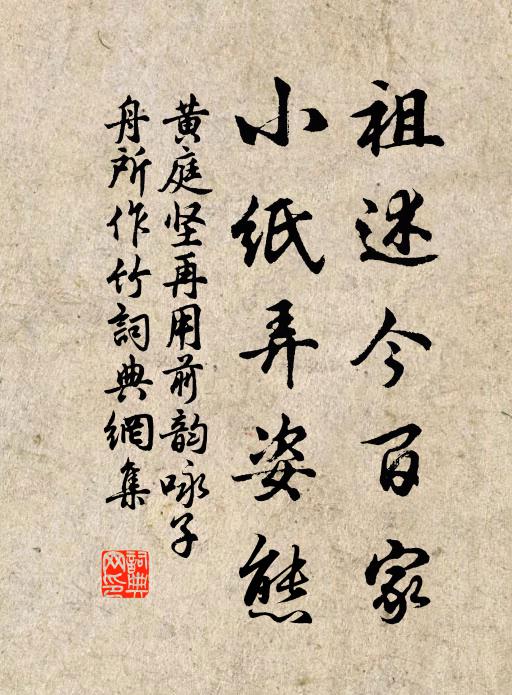 祖述今百家
小纸弄姿态
黄庭坚再用前韵咏子
舟所作竹詞典網集
詞典网印